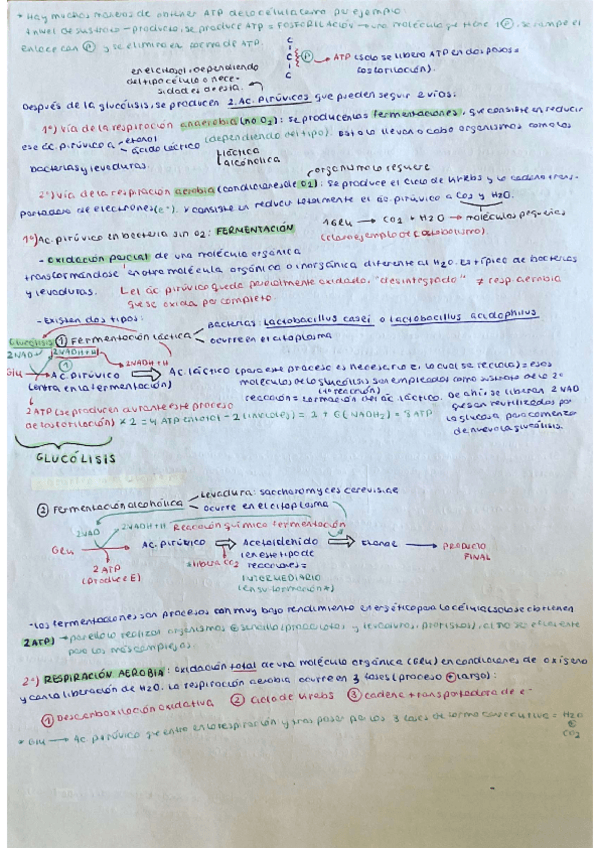 * Hay muchas maneras de obtener ATP de la célula como por ejemplo
A nivel de sustrato → producto, se produce ATP = FOSFORILACIÓN → una molécula que tiene 1 P, se rompe el
enlace con P y se elimina en forma de ATP.
C
C
C
C
P → ATP (solo se libera ATP en dos pasos =
fosforilación).
en el citosol, dependiendo
del tipo celula o nece-
sidades de esta.
Después de la glucólisis, se producen 2 Ac. Pirúvicos que pueden seguir 2 vías:
1ª) Vía de la respiración anaerobia (no O2): se producen las fermentaciones, que consiste en reducir
ese ác. pirúvico a etanol
ácido láctico (dependiendo del tipo). Esto lo llevan a cabo organismos como las
bacterias y levaduras.
láctica
alcohólica
organismo lo requiere
2ª) vía de la respiración aerobia (condiciones de O2). Se produce el ciclo de Krebs y la cadena trans-
portadora de electrones (e-). Y consiste en reducir totalmente el ac. pirúvico a CO2 y H2O.
1 Glu → CO2 + H2O → moléculas pequeñas
(claro ejemplo de catabolismo).
1ª) Ac. pirúvico en bacteria sin O2: FERMENTACIÓN
- Oxidación parcial de una molécula orgánica
transformándose en otra molécula orgánica o inorgánica diferente al H2O. Es típico de bacterias
y levaduras.
el ác pirúvico quede parcialmente oxidado, "desintegrado" ≠ resp. aerobia
que se oxida por completo.
- Existen dos tipos:
① Fermentación láctica
Bacterias: Lactobacillus casei o Lactobacillus acidophilus
ocurre en el citoplasma
Glucólisis
2NAD
2NADH+H
2NADH+H
Glu → Ac. PIRÚVICO ⇒ Ac. láctico (para este proceso es necesario el cual se recicla) = esos
(entra en la fermentación)
moléculas de la glucólisis son empleadas como sustrato de la 2ª
(1ª reacción)
reacción = formación del ác láctico. De ahí se liberan 2 NAD
que son reutilizados por
la glucosa para comenzar
de nuevo la glucólisis.
2 ATP (se producen durante este proceso
de fosforilación) × 2 = 4 ATP en total - 2 (iniciales) = 2 + 6 (NADH2) = 8 ATP
GLUCÓLISIS
② Fermentación alcohólica
Levadura: saccharomyces cerevisiae
ocurre en el citoplasma
2NAD
2NADH+H
Reacción química fermentación
Glu → Ac. Pirúvico ⇒ Acetaldehído ⇒ Etanol → PRODUCTO
FINAL
2 ATP
(produce E)
libera CO2
(en este tipo de
reacciones =
INTERMEDIARIO
- Las fermentaciones son procesos con muy bajo rendimiento energético para la célula (solo se obtienen
2 ATP) → por ello lo realizan organismos + sencillos (procariotas y levaduras, protistas), al no ser eficiente
para los más complejos.
2ª) RESPIRACIÓN AEROBIA: oxidación total de una molécula orgánica (Glu) en condiciones de oxígeno
y con la liberación de H2O. La respiración aerobia ocurre en 3 fases (proceso + largo):
① Descarboxilación oxidativa ② Ciclo de Krebs ③ cadena transportadora de e-
* Glu → Ac. pirúvico que entra en la respiración y tras pasar por las 3 fases de forma consecutiva = H2O
+
CO2